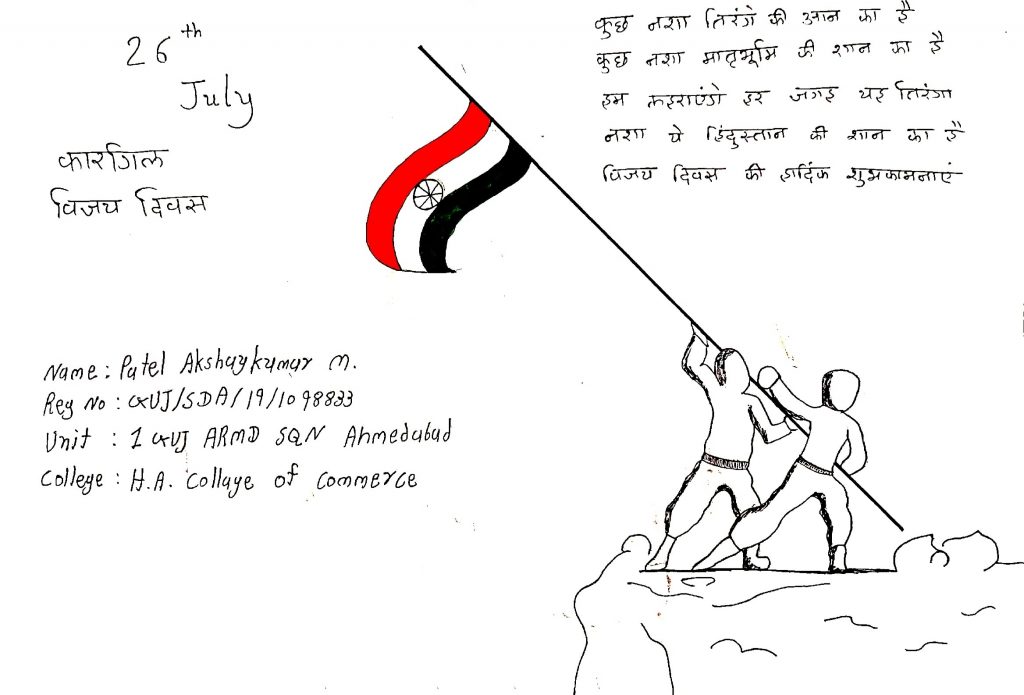 26th
July
कारगिल
विजय दिवस
कुछ नशा तिरंगे की आन का है
कुछ नशा मातृभूमि की शान का है
हम लहराएंगे हर जगह यह तिरंगा
नशा ये हिंदुस्तान की शान का है
विजय दिवस की हार्दिक शुभकामनाएं
Name : Patel Akshaykumar M.
Reg No : GUJ/SDA/19/1098833
Unit : 1 GUJ ARMD SQN Ahmedabad
College : H.A. Collage of Commerce